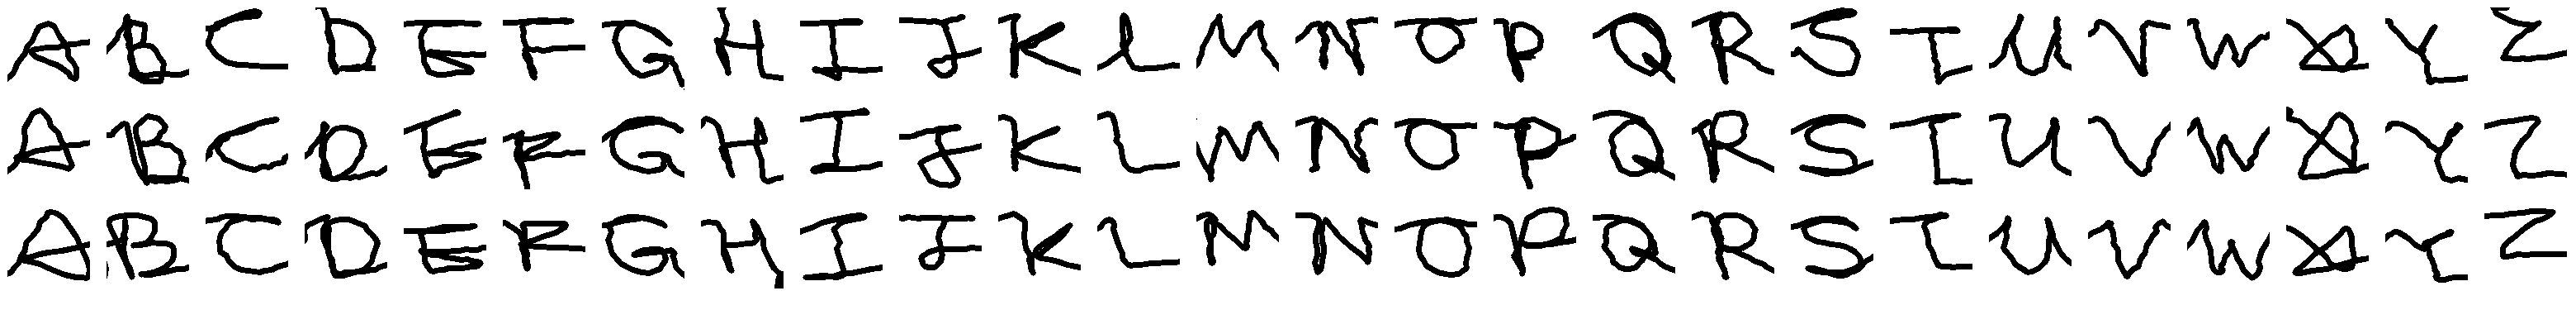 A B C D E F G H I J K L M N O P Q R S T U V W X Y Z
A B C D E F G H I J K L M N O P Q R S T U V W X Y Z
A B C D E F G H I J K L M N O P Q R S T U V W X Y Z